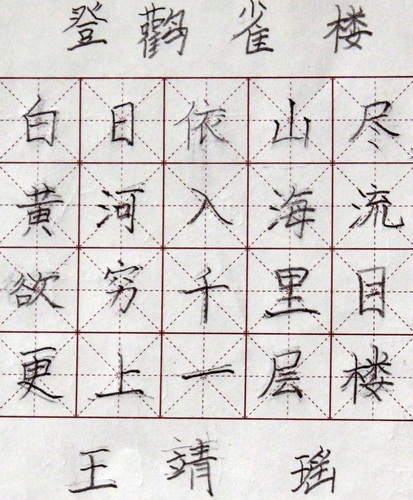 登鸛雀楼
白日依山尽
黄河入海流
欲穷千里目
更上一层楼
王靖瑶